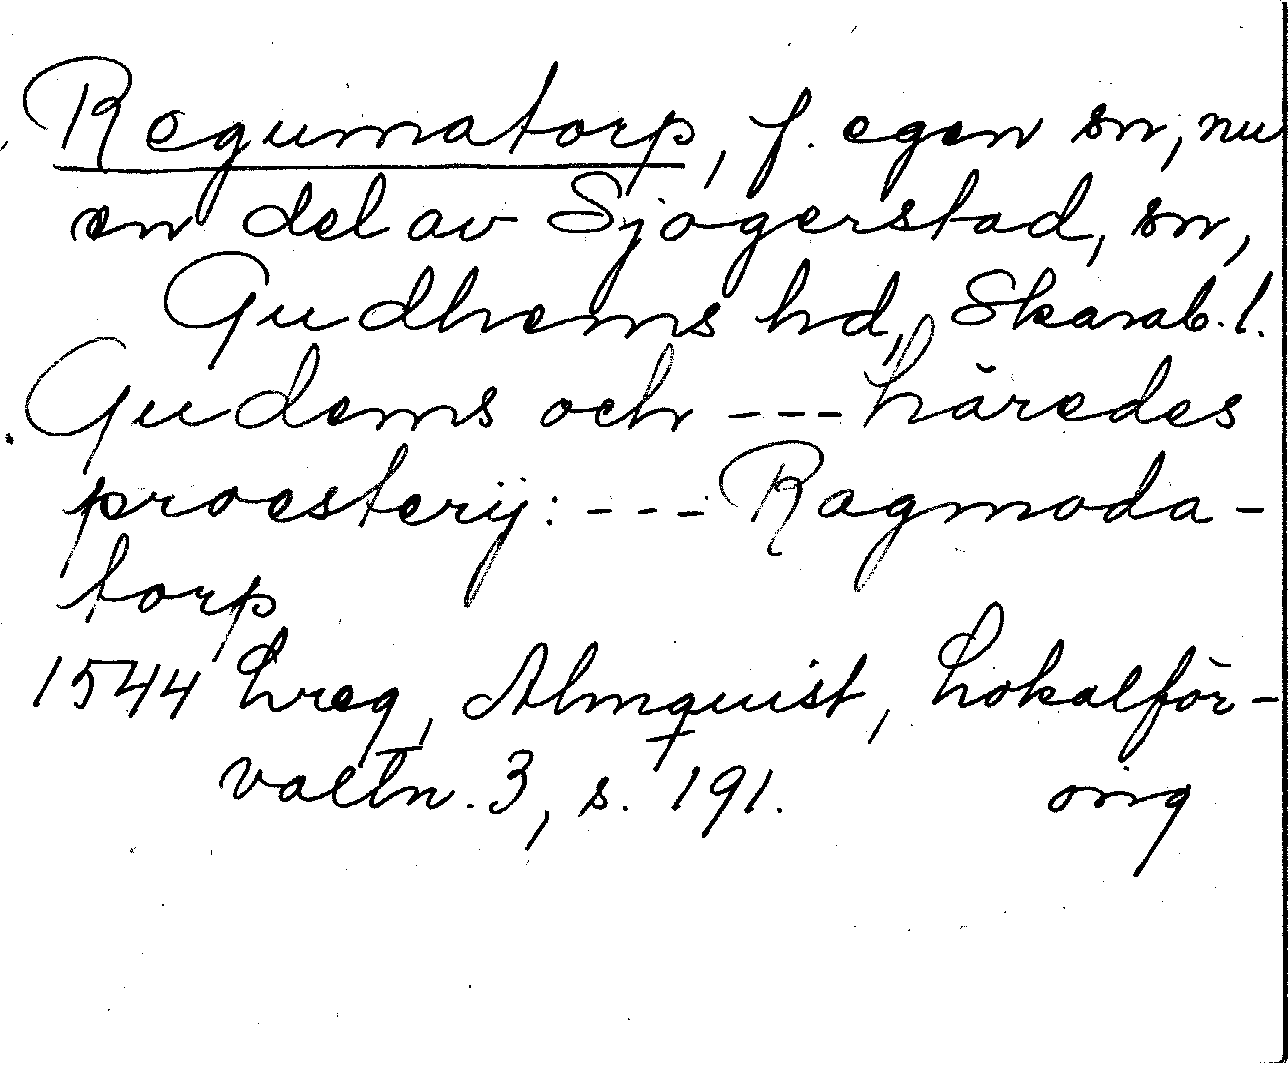 Regumatorp, f. egen sn, nu
en del av Sjogerstad, sn,
Gudhems hd, Skarab. l.
Gudems och --- häredes
proesterij: --- Ragmoda-
torp
1544 Lreg, Almquist, Lokalför-
valtn. 3, s. 191. orig